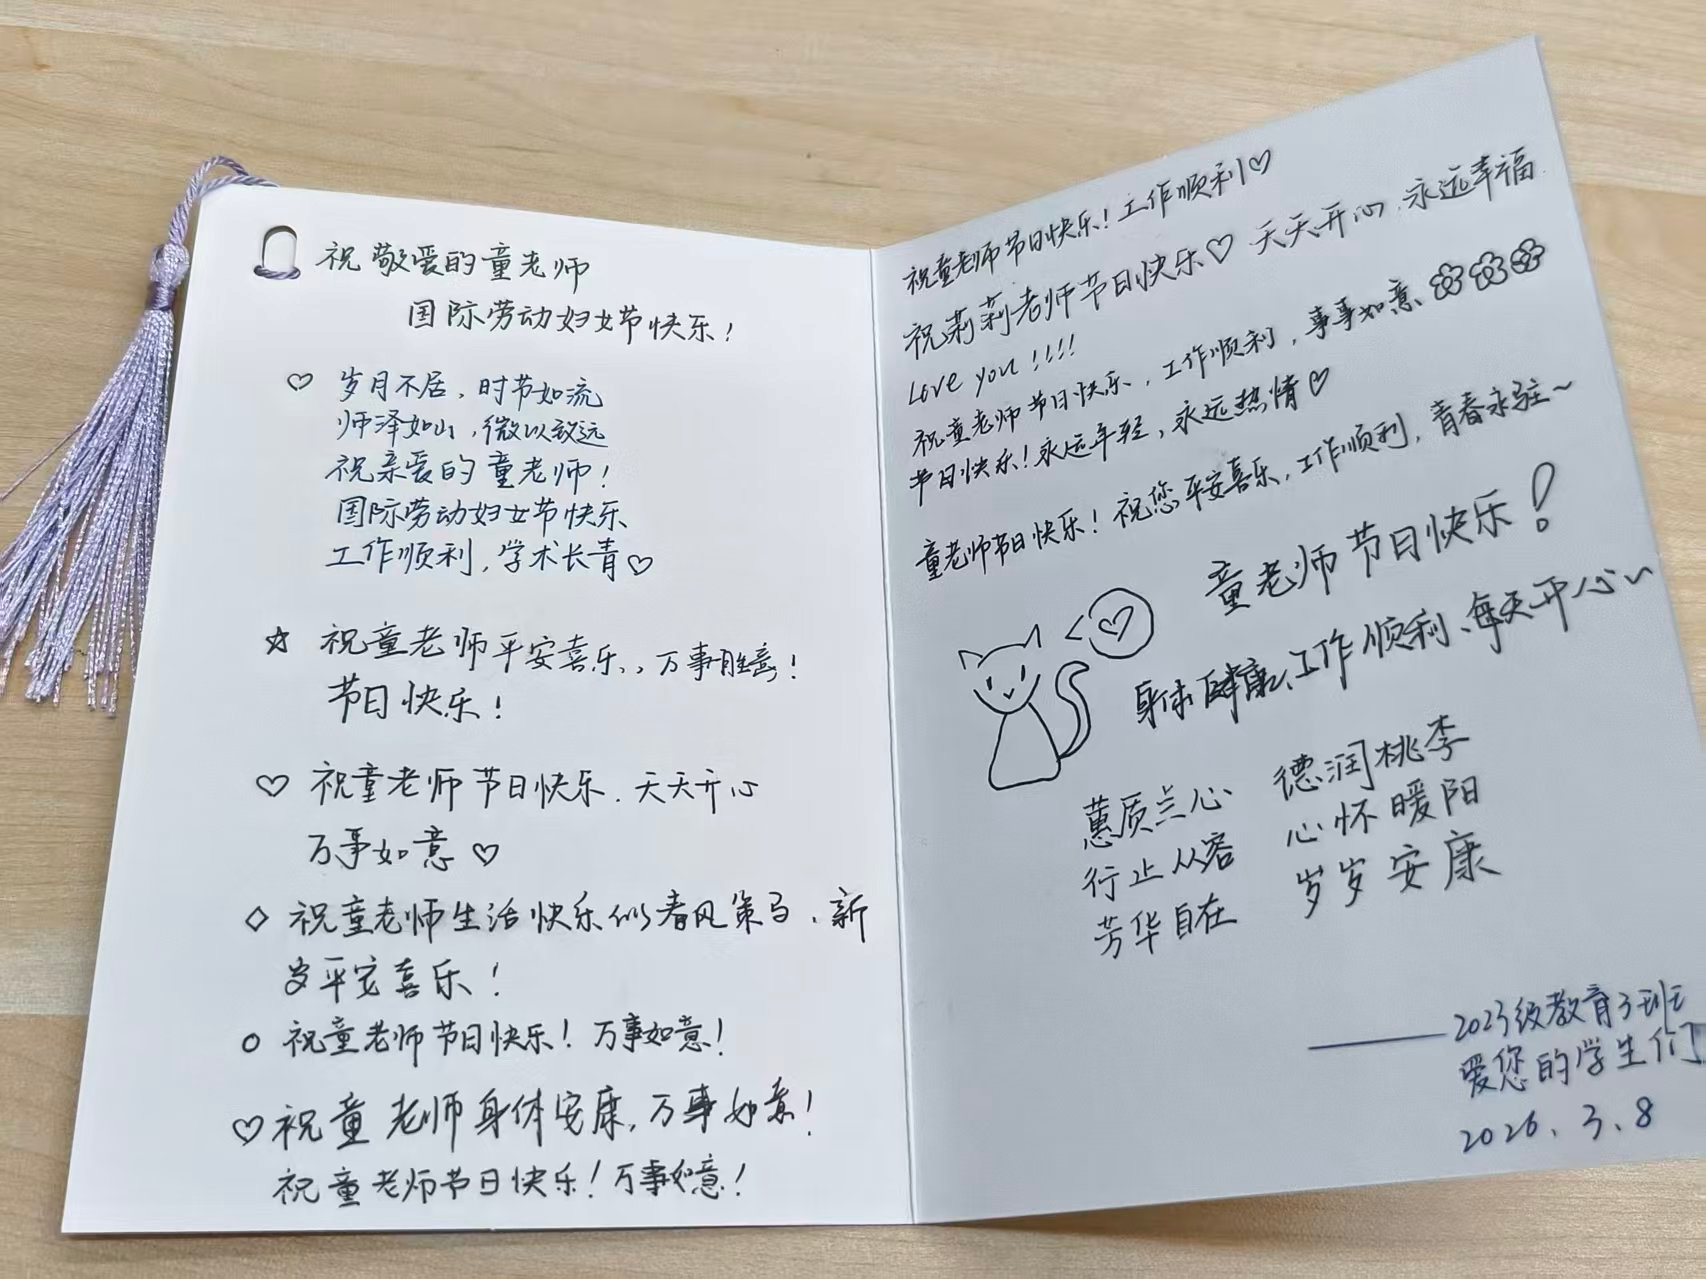 祝敬爱的童老师
国际劳动妇女节快乐!
♡ 岁月不居，时节如流
师泽如山，微以致远
祝亲爱的童老师!
国际劳动妇女节快乐
工作顺利，学术长青♡
☆ 祝童老师平安喜乐、万事胜意!
节日快乐!
♡ 祝童老师节日快乐、天天开心
万事如意♡
◇ 祝童老师生活快乐似春风策马、新
岁平安喜乐!
○ 祝童老师节日快乐! 万事如意!
♡ 祝童老师身体安康,万事如意!
祝童老师节日快乐! 万事如意!
祝童老师节日快乐! 工作顺利♡
祝莉莉老师节日快乐♡ 天天开心、永远幸福
Love you !!!!
祝童老师节日快乐，工作顺利，事事如意、
节日快乐! 永远年轻，永远热情♡
童老师节日快乐! 祝您平安喜乐，工作顺利，青春永驻~
童老师节日快乐!
身体健康、工作顺利、每天开心~
蕙质兰心 德润桃李
行止从容 心怀暖阳
芳华自在 岁岁安康
——2023级教育3班
爱您的学生们
2026、3、8